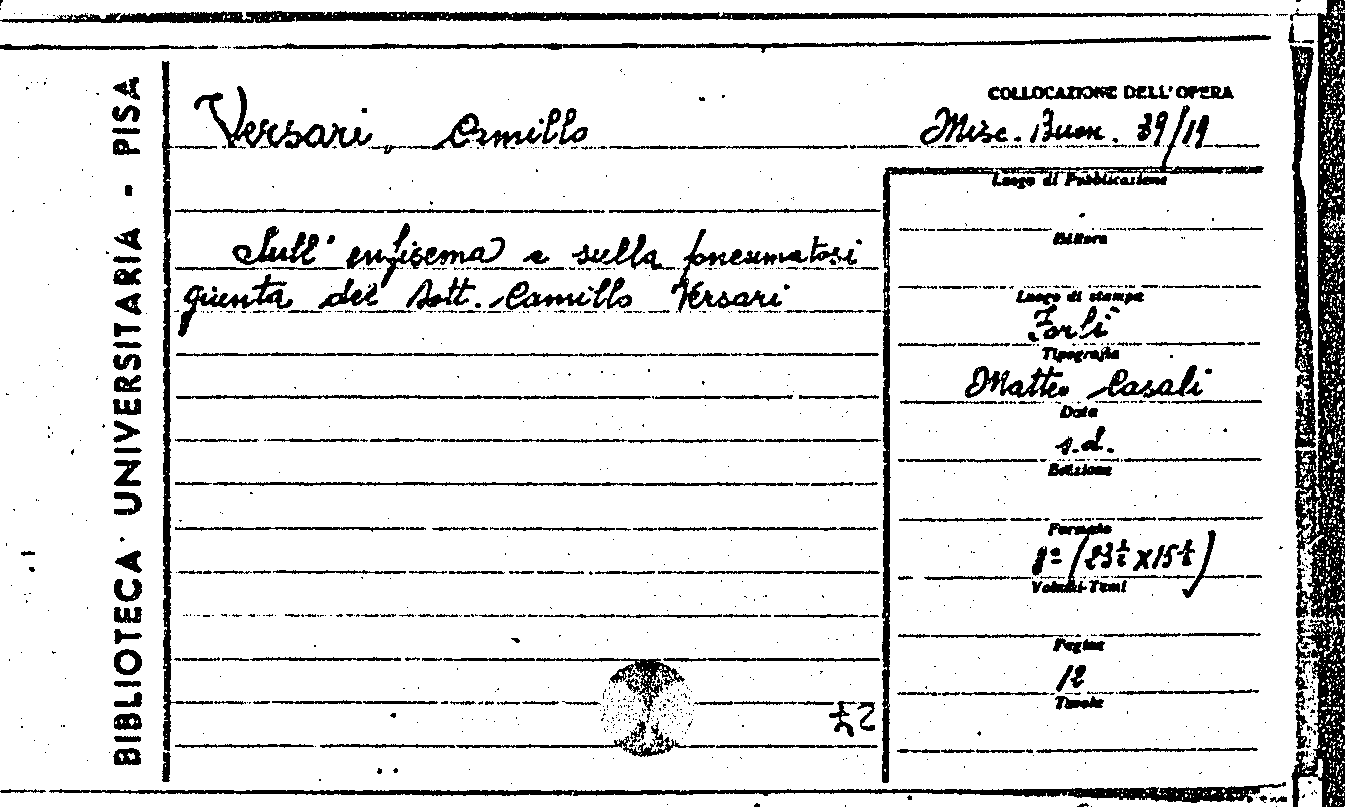 BIBLIOTECA UNIVERSITARIA - PISA
Versari, Camillo
COLLOCAZIONE DELL'OPERA
Misc. Buon. 39/19
Luogo di Pubblicazione
Editore
Sull' enfisema e sulla pneumatosi
giunta del Dott. Camillo Versari
Luogo di stampa
Forlì
Tipografia
Matteo Casali
Data
s.d.
Edizione
Formato
8º (23½ x 15½)
Volumi-Tomi
Pagine
12
Tavole